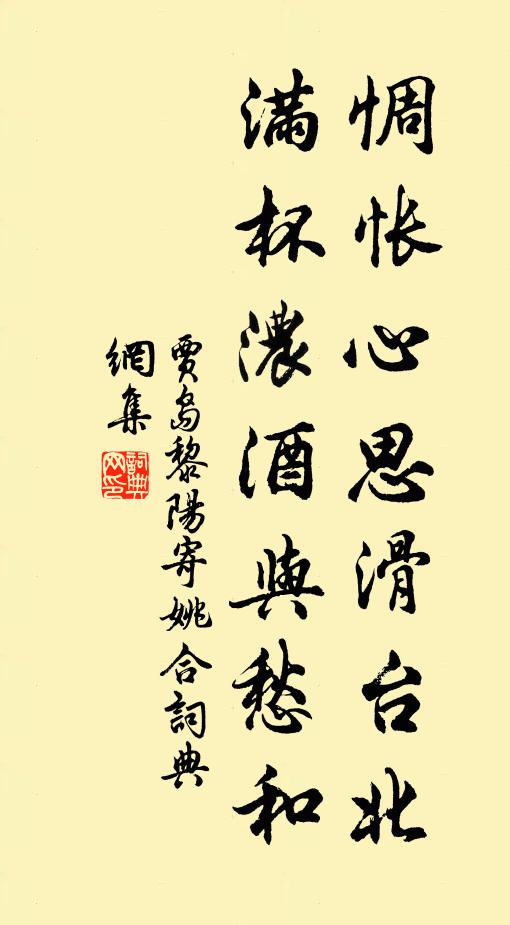 惆悵心思滑台北
滿杯濃酒與愁和
賈島黎陽寄姚合詞典
網集
詞典網印